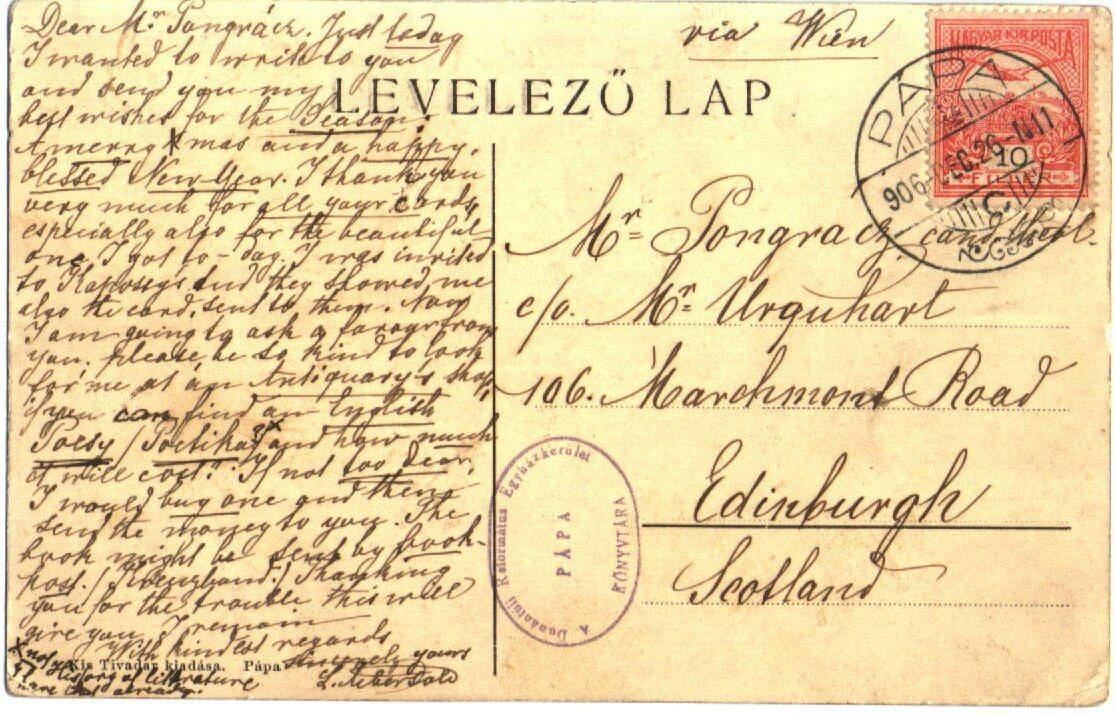 Dear Mr Pongrácz. Just today
I wanted to write to you
and send you my
best wishes for the Season,
A merry Xmas and a happy,
blessed New Year. I thank you
very much for all your cards,
especially also for the beautiful
one I got to-day. I was invited
to and they showed me
also the card, sent to them. Now
I am going to ask a favour from
you. Please, be so kind to look
for me at an Antiquary's shop,
if you can find an English
Poesy / Poetika x/ and how much
it will cost? If not too dear,
I would buy one and then
send the money to you. The
book might be sent by book-
post. / Kreuzband. / Thanking
you for the trouble this will
give you, I remain
With kindest regards
sincerely yours
x not History of litterature
have that already.
Kis Tivadar kiadása. Pápa
via Wien
LEVELEZŐ LAP
MAGYAR KIR. POSTA
10
PÁPA
906 DEC. 26
Mr Pongrácz, cand.
c/o. Mr Urquhart
106. Marchmont Road
Edinburgh
Scotland
A Dunántúli Református Egyházkerület
PÁPA
KÖNYVTÁRA